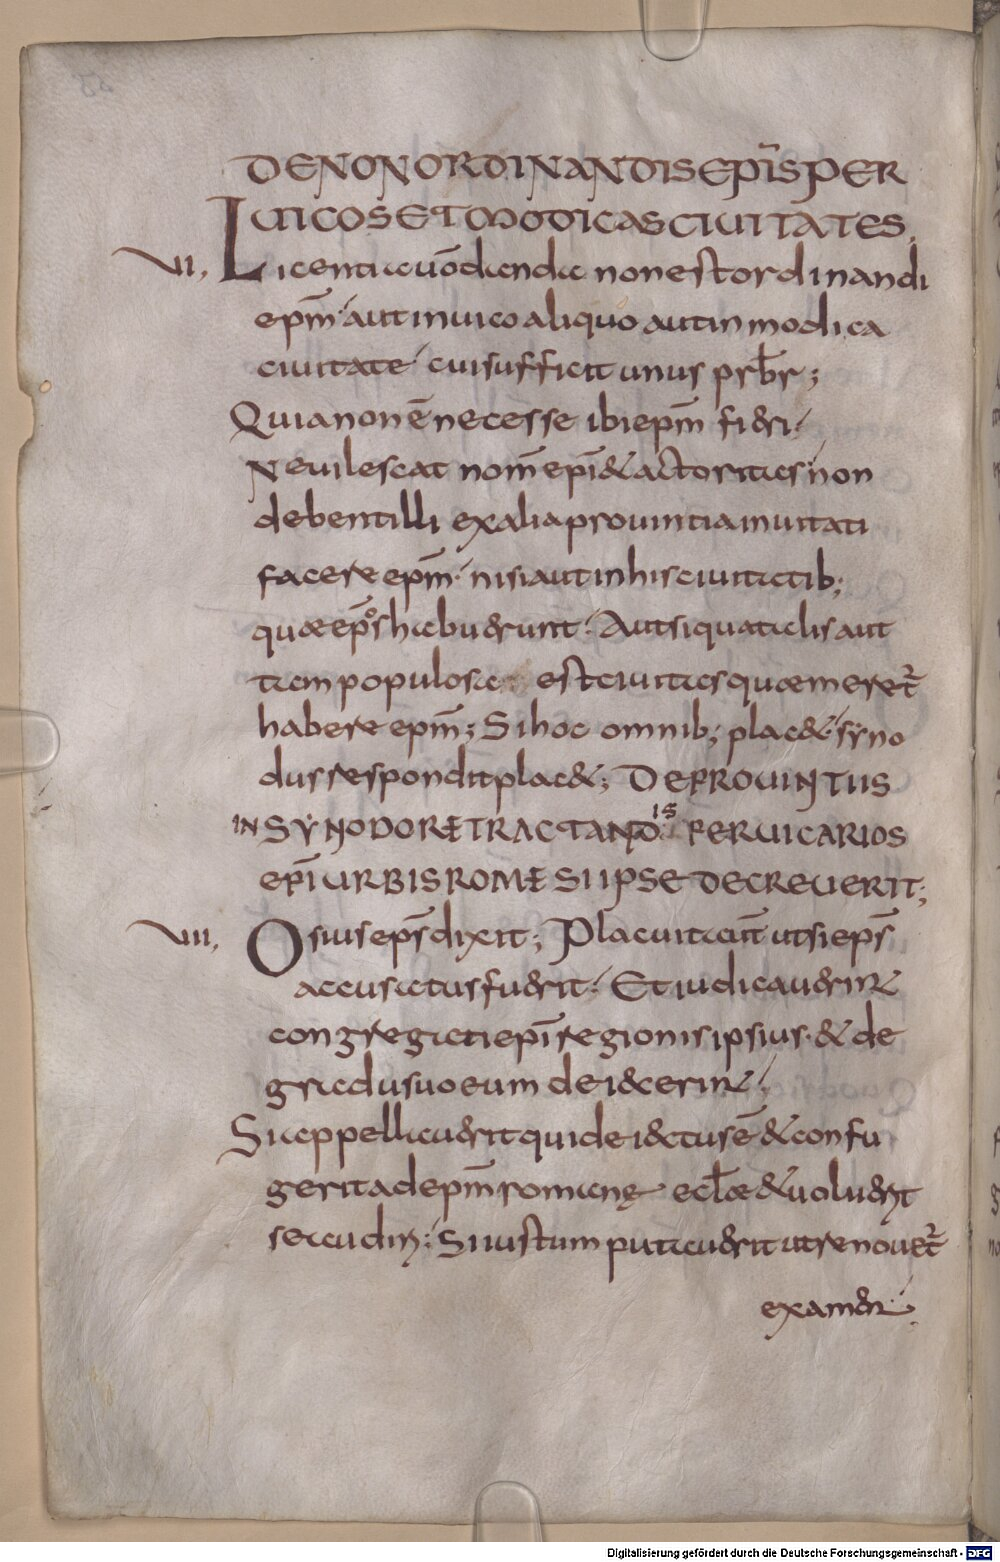 DE NON ORDINANDIS EPĪS PER
VICOS ET MODICAS CIVITATES,
VI, Licentia uō danda non est ordinandi
epm̄ aut in uico aliquo aut in modica
ciuitate cui sufficit unus prb̄r;
Quia non ē necesse ibi epm̄ fieri.
Ne uilescat nom̄ epī & actoritas non
debent illi ex alia prouintia inuitati
facere epm̄. nisi aut in his ciuitatib;
quae ep̄os habuerunt. Aut si qua talis aut
tam populosa est ciuitas quae meretr̄
habere epm̄; Si hoc omnib; plac&. syno
dus respondit plac&; DE PROVINTIIS
IN SYNODO RETRACTANDIS PER VICARIOS
EPĪ URBIS ROME SI IPSE DECREVERIT;
VII, Osius ep̄s dixit; Placuit aut̄ ut si ep̄s
accusatus fuerit. Et iudicauerint
congregati epī regionis ipsius. & de
gradu suo eum deiecerint.
Si appellauerit qui deiectus ē & confu
gerit ad epm̄ romanę eclae & uoluerit
se audiri. Si iustum putauerit ut renouetr̄
examen.
Digitalisierung gefördert durch die Deutsche Forschungsgemeinschaft - DFG